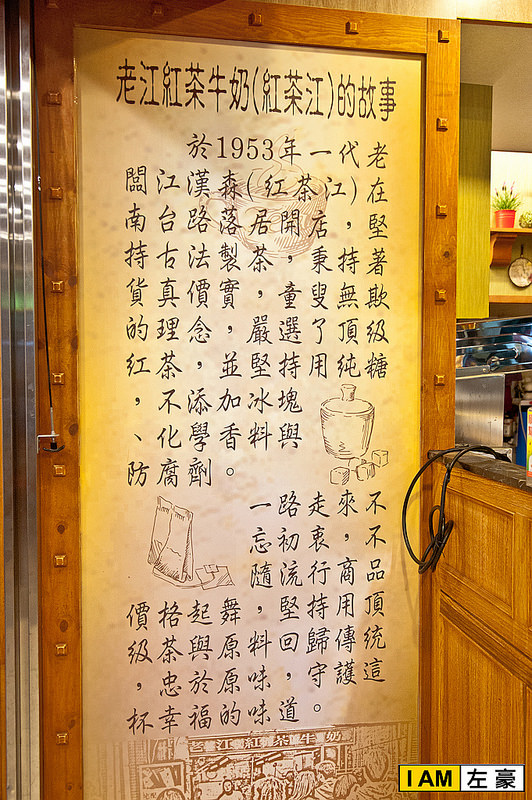 老江紅茶牛奶(紅茶江)的故事
於1953年一代老
闆江漢森(紅茶江)在
南台路落居開店，堅
持古法製茶，秉持著
貨真價實，童叟無欺
的理念，嚴選了頂級
紅茶，並堅持用純糖
，不添加冰塊
、化學香料與
防腐劑。
一路走來不
忘初衷，不
隨流行商品
價格起舞，堅持用頂
級茶與原料回歸傳統
，忠於原味，守護這
杯幸福的味道。
老江紅茶牛奶
I AM 左豪